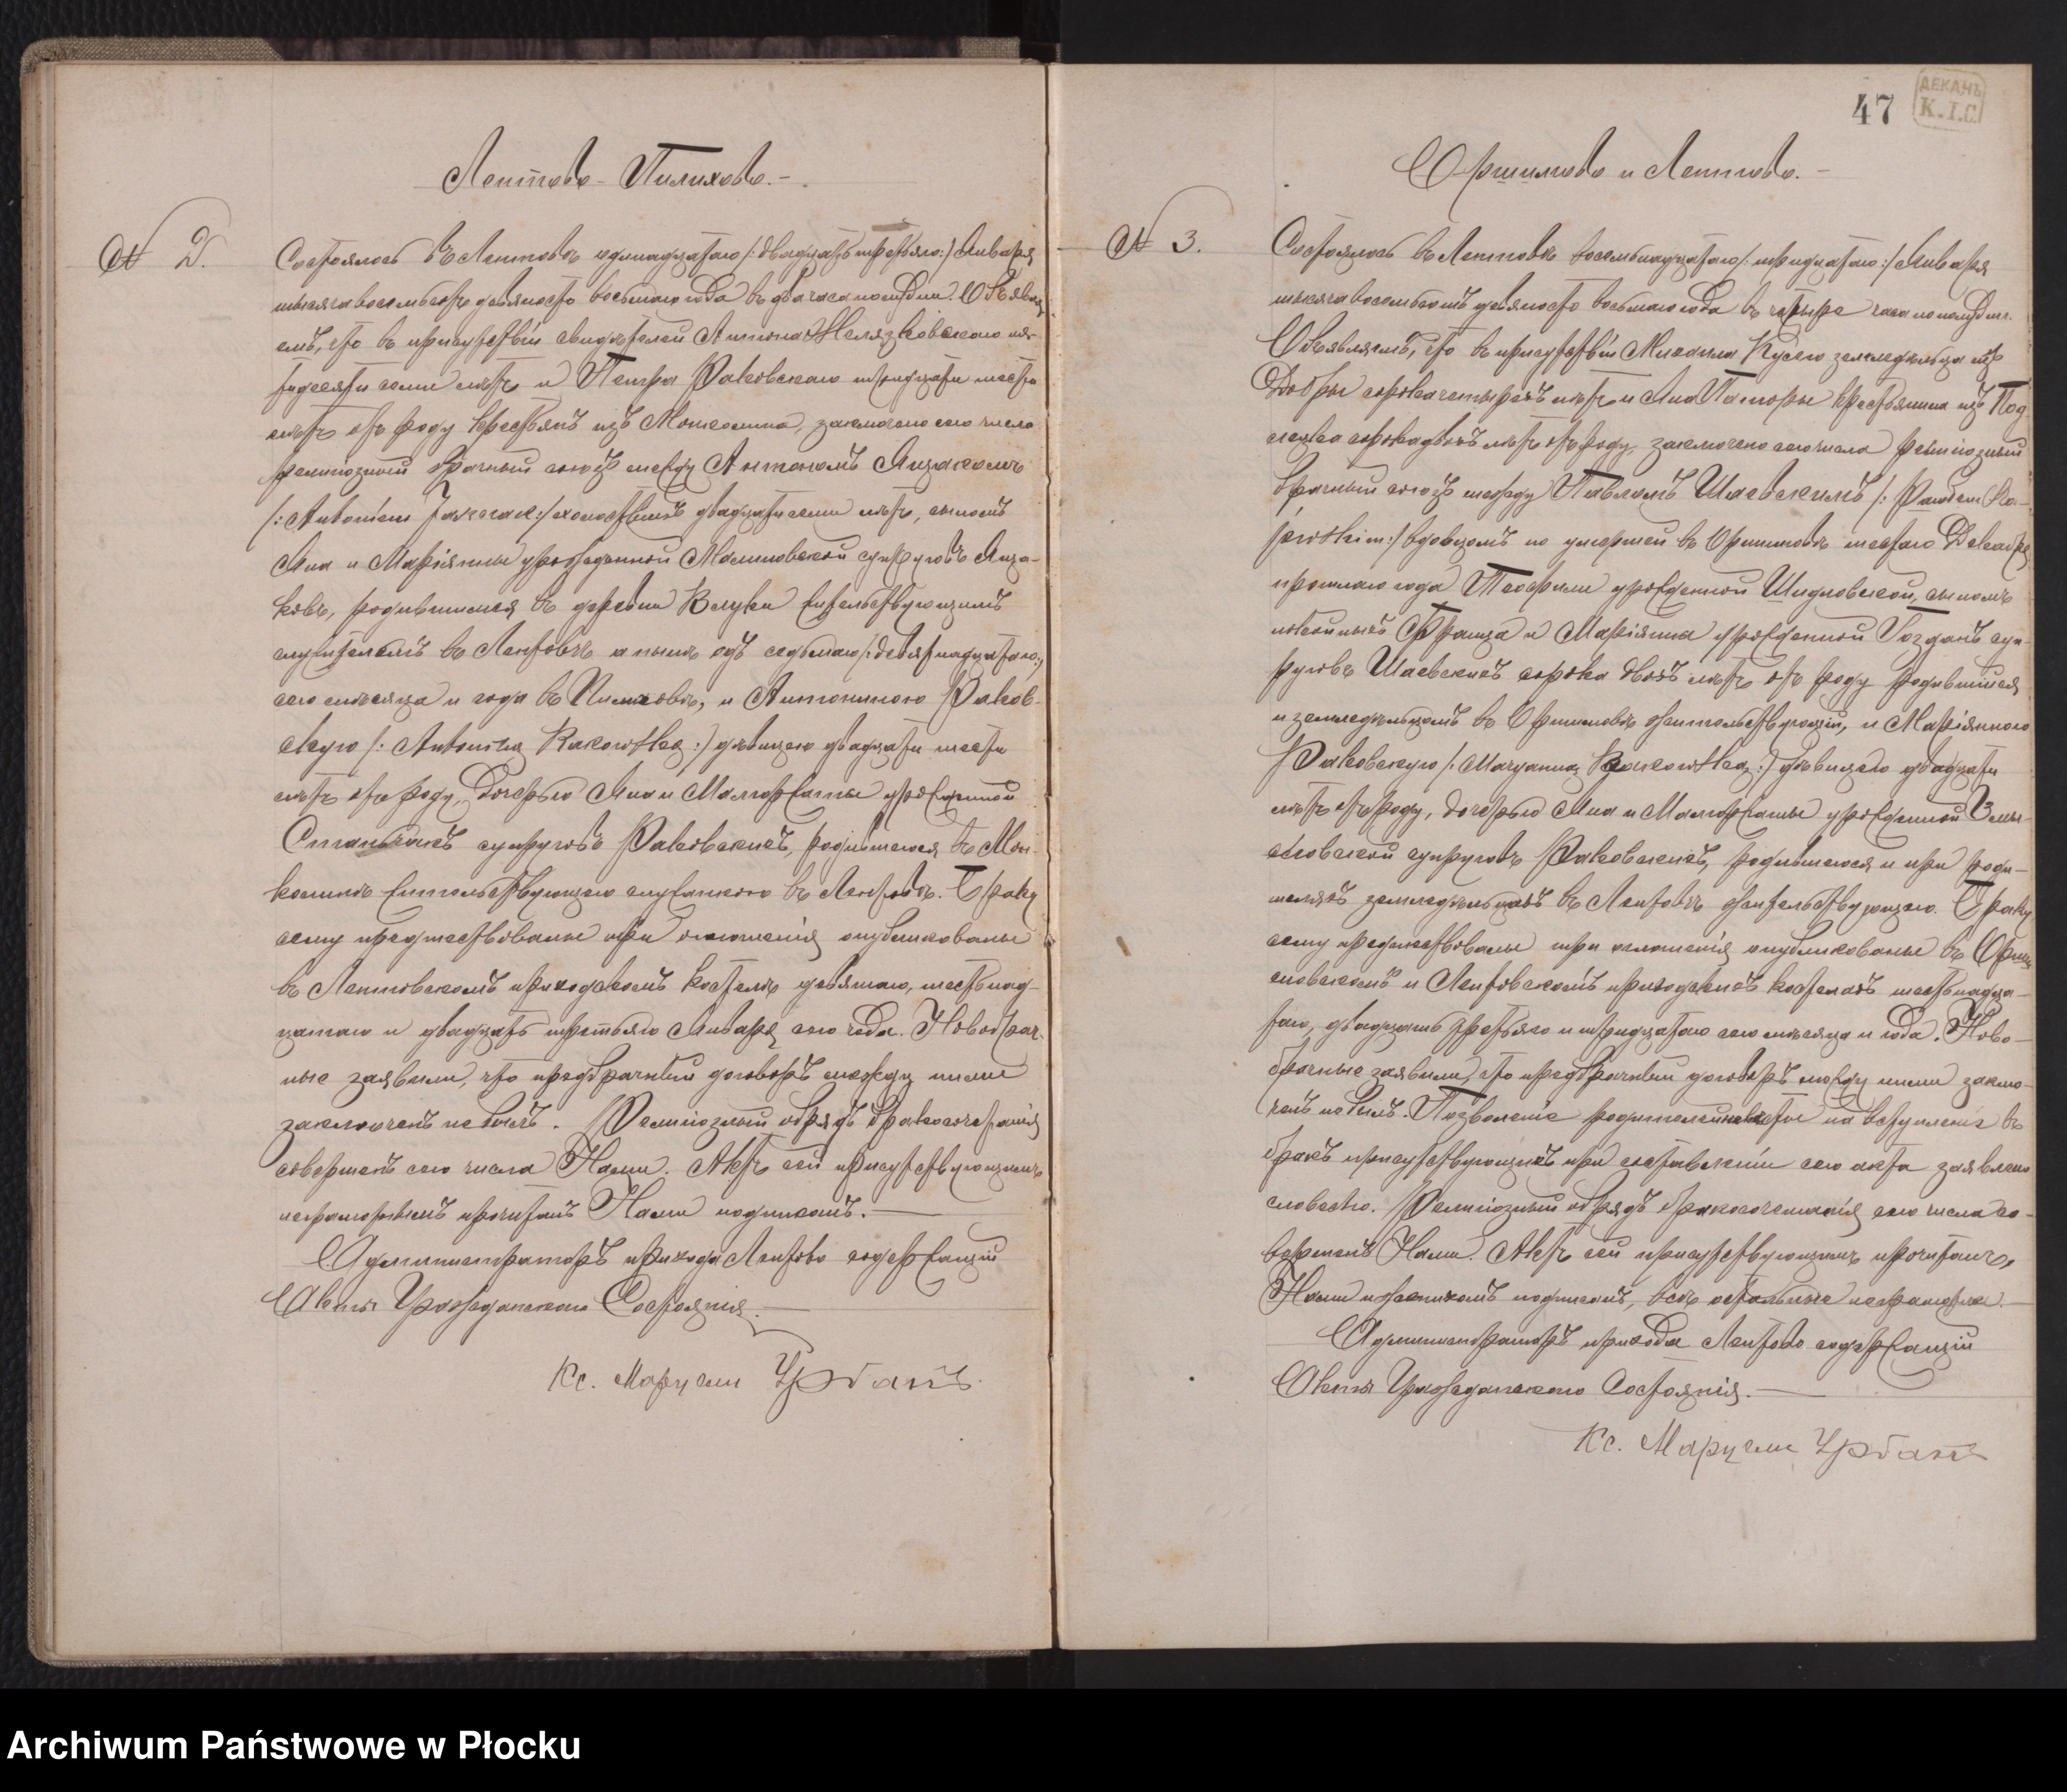 Лентово-Пилихово.-
№ 2.
Состоялось въ Лентовѣ одинадцатаго /:двадцать третьяго:/ Января
тысяча восемьсотъ девяносто восьмаго года въ два часа пополудни. Объявля-
емъ, что въ присутствіи свидѣтелей Антона Желязковскаго пя-
тидесяти семи лѣтъ и Петра Раковскаго тридцати шести
лѣтъ отъ роду крестьянъ изъ заключенъ сего числа
религіозный брачный союзъ между Антономъ Яцакомъ
/:Antonim Jaczak:/ холостымъ двадцати семи лѣтъ, сыномъ
Яна и Маріянны урожденной Малиновской супруговъ Яца-
ковъ, родившимся въ деревни жительствующимъ
служителемъ въ Лентовѣ а нынѣ отъ седьмаго /:девятнадцатаго:/
сего мѣсяца и года въ Пилиховѣ, и Антониною Раков-
скую /:Antonina Rakowska:/ дѣвицею двадцати шести
лѣтъ отъ роду, дочерью Яна и Малгоржаты урожденной
супруговъ Раковскихъ, родившеюся въ
жительствующею служанкою въ Лентовѣ. Браку
сему предшествовали три оглашенія опубликованы
въ Лентовскомъ приходскомъ костелѣ девятаго, шестнад-
цатаго и двадцать третьяго Января сего года. Новобрач-
ные заявили, что предбрачный договоръ между ними
заключенъ не былъ. Религіозный обрядъ бракосочетанія
совершенъ сего числа Нами. Актъ сей присутствующимъ
неграмотнымъ прочитанъ Нами подписанъ.
Администраторъ прихода Лентово содержащій
Акты Гражданскаго Состоянія.
Кс. Марцели Урбанъ
47
ДЕКАНЪ
К.I.С.
Оршимово и Лентово.-
№ 3.
Состоялось въ Лентовѣ восемьнадцатаго /:тридцатаго:/ Января
тысяча восемьсотъ девяносто восьмаго года въ четыре часа пополудни.
Объявляемъ, что въ присутствіи Михаила земледѣльца изъ
Добры сорока четырехъ лѣтъ и Яна крестьянина изъ
сорока двохъ лѣтъ отъ роду, заключенъ сего числа религіозный
брачный союзъ между Павломъ
вдовцомъ по умершей въ Оршимовѣ шестаго Декабря
прошлаго года Теофили урожденной Шидловской, сыномъ
покойныхъ Франца и Маріянны урожденной Гозданъ суп-
руговъ сорока двохъ лѣтъ отъ роду родившійся
и земледѣльцомъ въ Оршимовѣ жительствующій, и Маріянною
Раковскую /:Maryanna Rakowska:/ дѣвицею двадцати
лѣтъ отъ роду, дочерью Яна и Малгоржаты урожденной
супруговъ Раковскихъ, родившеюся и при роди-
теляхъ земледѣльцахъ въ Лентовѣ жительствующею. Браку
сему предшествовали три оглашенія опубликованы въ Орши-
мовскомъ и Лентовскомъ приходскихъ костелахъ шестьнадца-
таго, двадцать третьяго и тридцатаго сего мѣсяца и года. Ново-
брачные заявили, что предбрачный договоръ между ними заклю-
ченъ не былъ. Позволеніе родителей невѣсты на вступленіе въ
бракъ присутствующихъ при составленіи сего акта заявлено
словесно. Религіозный обрядъ бракосочетанія сего числа со-
вершенъ Нами. Актъ сей присутствующимъ прочитанъ,
Нами и женихомъ подписанъ, всѣ остальные неграмотны.
Администраторъ прихода Лентово содержащій
Акты Гражданскаго Состоянія.
Кс. Марцели Урбанъ
Archiwum Państwowe w Płocku